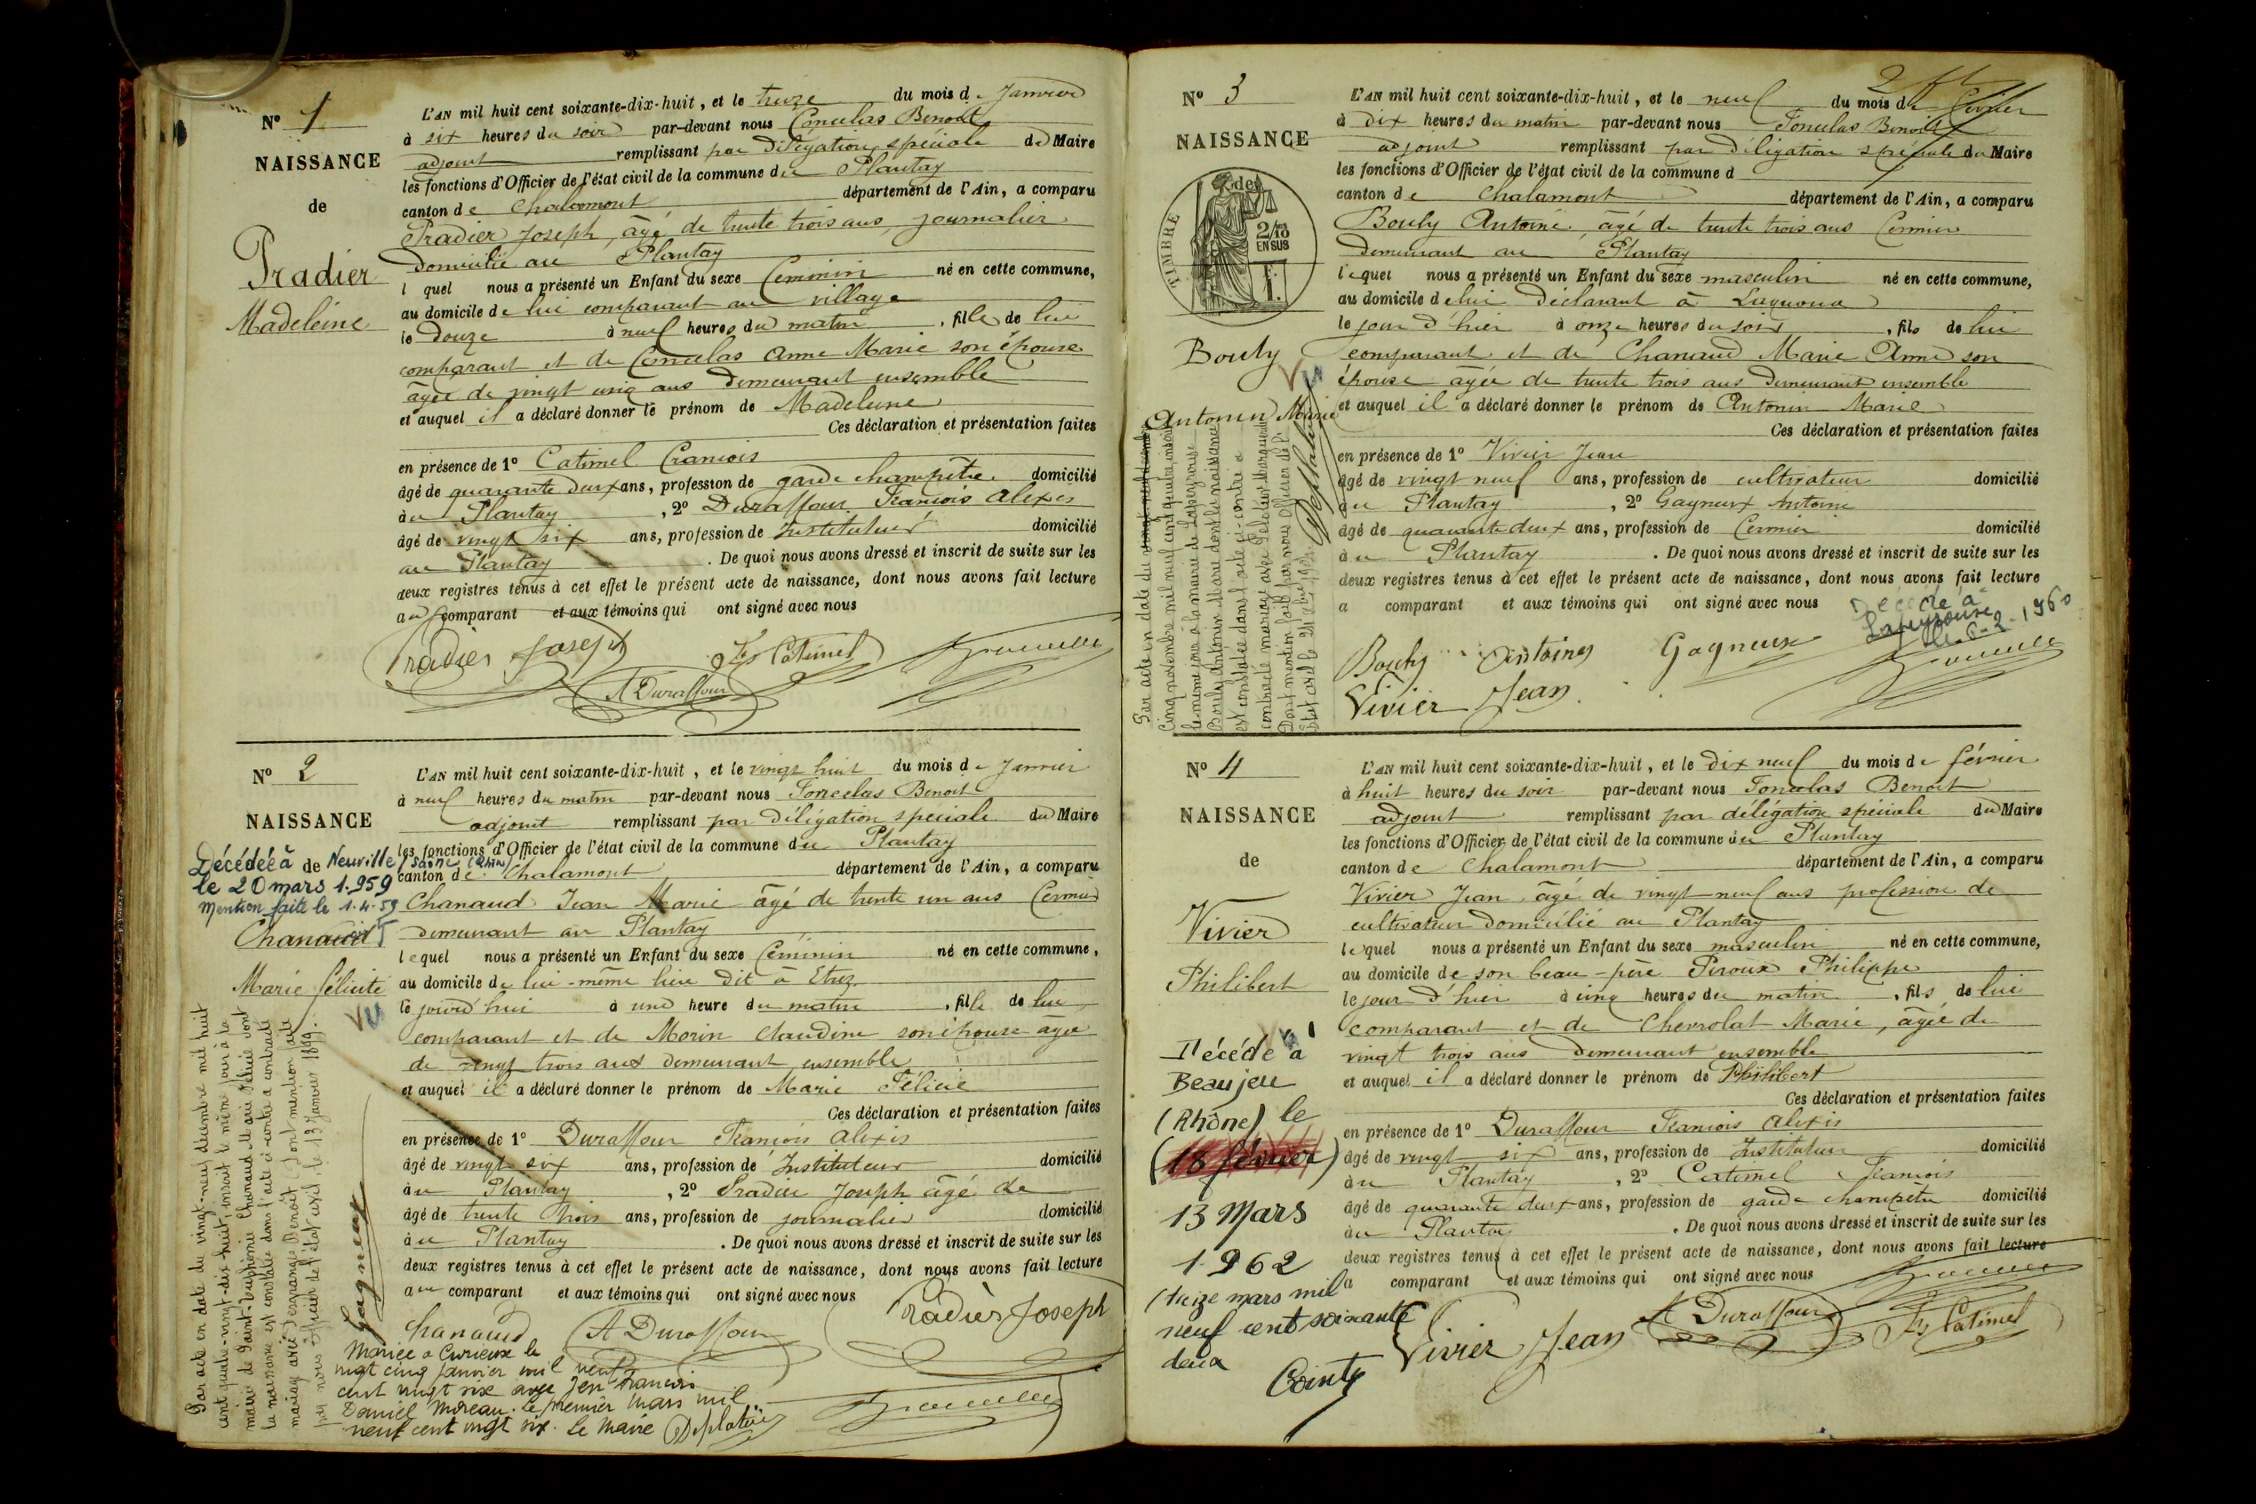 N° 1
NAISSANCE
de
Pradier
Madeleine
L'AN mil huit cent soixante-dix-huit, et le treize du mois de Janvier
à six heures du soir par-devant nous Foncelas Benoit
adjoint remplissant par délégation spéciale du Maire
les fonctions d'Officier de l'état civil de la commune du Plantay
canton de Chalamont département de l'Ain, a comparu
Pradier Joseph, âgé de trente trois ans, journalier
domicilié au Plantay
l quel nous a présenté un Enfant du sexe féminin né en cette commune,
au domicile de lui comparant au village
le douze à neuf heures du matin, fille de lui
comparant et de Foncelas Anne Marie son épouse
âgée de vingt cinq ans demeurant ensemble
et auquel il a déclaré donner le prénom de Madeleine
Ces déclaration et présentation faites
en présence de 1° Catimel François
âgé de quarante deux ans, profession de garde champêtre domicilié
au Plantay, 2° Duraffour François Alexis
âgé de vingt six ans, profession de Instituteur domicilié
au Plantay. De quoi nous avons dressé et inscrit de suite sur les
deux registres tenus à cet effet le présent acte de naissance, dont nous avons fait lecture
au comparant et aux témoins qui ont signé avec nous
Pradier Joseph Fs Catimel
A Duraffour
N° 2
NAISSANCE
de
Décédée à Neuville s/ Saône (Rhône)
le 20 mars 1.959
Mention faite le 1.4.59
Chanaud
Marie Félicie
Vu
L'AN mil huit cent soixante-dix-huit, et le vingt huit du mois de Janvier
à neuf heures du matin par-devant nous Foncelas Benoit
adjoint remplissant par délégation spéciale du Maire
les fonctions d'Officier de l'état civil de la commune du Plantay
canton de Chalamont département de l'Ain, a comparu
Chanaud Jean Marie âgé de trente un ans fermier
demeurant au Plantay
lequel nous a présenté un Enfant du sexe féminin né en cette commune,
au domicile de lui-même lieu dit à Etrez
le jourd'hui à une heure du matin, fille de lui
comparant et de Morin Claudine son épouse âgée
de vingt trois ans demeurant ensemble
et auquel il a déclaré donner le prénom de Marie Félicie
Ces déclaration et présentation faites
en présence de 1° Duraffour François Alexis
âgé de vingt six ans, profession de Instituteur domicilié
au Plantay, 2° Pradier Joseph âgé de
âgé de trente trois ans, profession de journalier domicilié
au Plantay. De quoi nous avons dressé et inscrit de suite sur les
deux registres tenus à cet effet le présent acte de naissance, dont nous avons fait lecture
au comparant et aux témoins qui ont signé avec nous
Chanaud A Duraffour Pradier Joseph
Par acte en date du vingt-neuf décembre mil huit
cent quatre-vingt-dix-huit, inscrit le même jour à la
mairie de Saint-Euphémie Chanaud Marie Félicie dont
la naissance est constatée dans l'acte ci-contre a contracté
mariage avec Benoit Dont mention faite
par nous Officier de l'état civil le 13 Janvier 1899.
Gagneux
Mariée à Curieux le
vingt cinq Janvier mil neuf
cent vingt six avec Jean François
Daniel Moreau. Le premier Mars mil
neuf cent vingt six. Le Maire Deplatus
N° 3
NAISSANCE
TIMBRE
de
2/10
EN SUS
Bouly
Antonin Marie
Vu
L'AN mil huit cent soixante-dix-huit, et le neuf du mois de février
à dix heures du matin par-devant nous Foncelas Benoit
adjoint remplissant par délégation spéciale du Maire
les fonctions d'Officier de l'état civil de la commune d
canton de Chalamont département de l'Ain, a comparu
Bouly Antoine, âgé de trente trois ans fermier
demeurant au Plantay
lequel nous a présenté un Enfant du sexe masculin né en cette commune,
au domicile de lui déclarant à
le jour d'hier à onze heures du soir, fils de lui
comparant et de Chanaud Marie Anne son
épouse âgée de trente trois ans demeurant ensemble
et auquel il a déclaré donner le prénom de Antonin Marie
Ces déclaration et présentation faites
en présence de 1° Vivier Jean
âgé de vingt neuf ans, profession de cultivateur domicilié
au Plantay, 2° Gagneux Antoine
âgé de quarante deux ans, profession de fermier domicilié
au Plantay. De quoi nous avons dressé et inscrit de suite sur les
deux registres tenus à cet effet le présent acte de naissance, dont nous avons fait lecture
a comparant et aux témoins qui ont signé avec nous
Décédé à
Lapeyrouse
le 6-2-1960
Bouly Antoine Gagneux
Vivier Jean
Par acte en date du
cinq novembre mil neuf cent quatre, inscrit
le même jour à la mairie de Lapeyrouse
Bouly Antonin Marie dont la naissance
est constatée dans l'acte ci-contre a
contracté mariage avec
Dont mention faite par nous Officier de l'
Etat civil le
N° 4
NAISSANCE
de
Vivier
Philibert
L'AN mil huit cent soixante-dix-huit, et le dix neuf du mois de février
à huit heures du soir par-devant nous Foncelas Benoit
adjoint remplissant par délégation spéciale du Maire
les fonctions d'Officier de l'état civil de la commune du Plantay
canton de Chalamont département de l'Ain, a comparu
Vivier Jean âgé de vingt neuf ans profession de
cultivateur domicilié au Plantay
lequel nous a présenté un Enfant du sexe masculin né en cette commune,
au domicile de son beau-père Piroux Philippe
le jour d'hier à cinq heures du matin, fils de lui
comparant et de Chevrolat Marie, âgée de
vingt trois ans demeurant ensemble
et auquel il a déclaré donner le prénom de Philibert
Ces déclaration et présentation faites
en présence de 1° Duraffour François Alexis
âgé de vingt six ans, profession de Instituteur domicilié
au Plantay, 2° Catimel François
âgé de quarante deux ans, profession de garde champêtre domicilié
au Plantay. De quoi nous avons dressé et inscrit de suite sur les
deux registres tenus à cet effet le présent acte de naissance, dont nous avons fait lecture
a comparant et aux témoins qui ont signé avec nous
Vivier Jean A Duraffour Fs Catimel
Décédé à
Beaujeu
(Rhône) le
(18 février)
13 Mars
1.962
(treize mars mil
neuf cent soixante
deux
Cointy